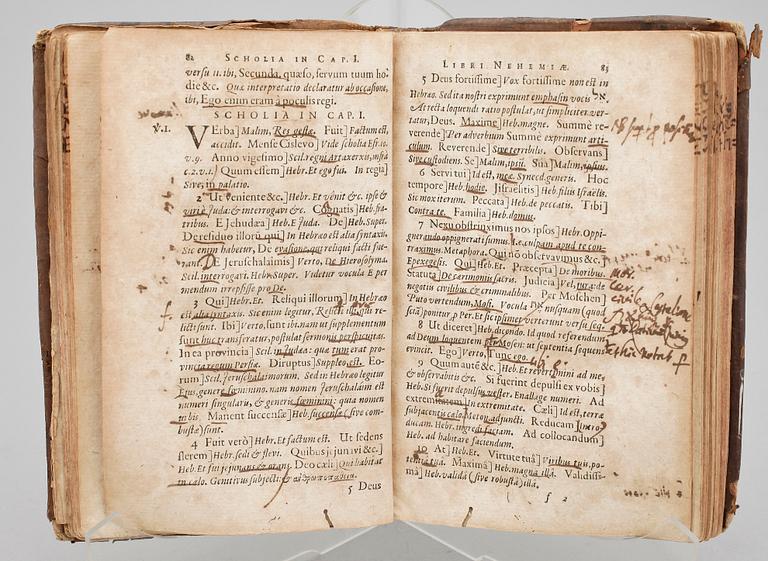 82 SCHOLIA IN CAP. I.
versu 11. ibi, Secunda, quæso, servum tuum ho-
die &c. Quæ interpretatio declaratur ab occasione,
ibi, Ego enim eram à poculis regi.
SCHOLIA IN CAP. I.
V.1. VErba] Malim, Res gestæ. Fuit] Factum est,
accidit. Mense Cislevo] Vide scholia Esr. 10.
v. 9. Anno vigesimo] Scil. regni Attaxerxis,
c. 2. v. 1.) Quum essem] Hebr. Et ego fui. In regiâ]
Sive, in palatio.
2 Ut veniente &c.] Hebr. Et venit &c. ipse &
Judæ: & interrogavi &c. Cognatis] Heb. fra-
tribus. E Jehudæa] Heb. E Juda. De] Heb. Super.
De residuo illorum qui] In Hebræo est alia syntaxis.
Sic enim habetur, De evasione, qui reliqui facti fue-
rant. De Jeruschalaimis] Verto, De Hierosolyma.
Scil. interrogavi. Hebr. Super. Videtur vocula E per
mendum irrepsisse pro De.
3 Qui] Hebr. Et. Reliqui illorum] In Hebræo
est alia syntaxis. Sic enim legitur, qui re-
licti sunt. Ibi] Verto, sunt ibi. nam ut supplementum
sunt huc transferatur, postulat sermonis perspicuitas.
In ea provincia] Scil. in Judæa: quæ tum erat pro-
vincia regum Persiæ. Diruptus] Suppleo, est. Eo-
rum] Scil. Jeruschalaimorum. Sed in Hebræo legitur
Ejus, genere fœminino. nam nomen Jeruschalaim est
numeri singularis, & generis fœminini: quia nomen
urbis. Manent succensæ] Heb. succensæ (sive com-
bustæ) sunt.
4 Fuit verò] Hebr. Et factum est. Ut sedens
flerem] Hebr. sedi & flevi. Quibus jejunivi &c.]
Heb. Et fui jejunans & orans. Deo cæli] Qui habitat
in cælo. Genitivus subjecti: &
5 Deus
LIBRI NEHEMIÆ. 83
5 Deus fortissime] Vox fortissime non est in
Hebræo. Sed ita nostri exprimunt emphasin vocis אל
At recta loquendi ratio postulat, ut simpliciter ver-
tatur, Deus. Maxime] Heb. magne. Summè re-
verende] Per adverbium Summè exprimunt arti-
culum. Reverende] Sive terribilis. Observans]
Sive custodiens. Se] Malim, ipsū. Sua] Malim, ipsius.
6 Servi tui] Id est, meæ. Synecd. generis. Hoc
tempore] Heb. hodie. Jisraelitis] Heb. filiis Israelis.
Sic mox iterum. Peccata] Heb. de peccatis. Tibi]
Contra te. Familia] Heb. domus.
7 Nexu obstrinximus nos ipsos] Hebr. Oppi-
gnerando oppigneravi sumus. I.e. culpam apud te con-
traximus. Metaphora. Qui nō observavimus &c.]
Epexegesis. Qui] Heb. Et. Præcepta] De moribus.
Statuta] De cærimoniis sacris. Judicia] Vel, jura: de
negotiis civilibus & criminalibus. Per Moschen]
Puto vertendum, Mosi. Vocula De nusquam (quod
sciā) ponitur, p Per. Et sic ipsimet verterunt versu seq.
8 Ut diceret] Heb. dicendo. Id quod referendum
ad Deum loquentem per Mosen: ut sententia sequens
evincit. Ego] Verto, Tunc ego.
9 Quum autē &c.] Heb. Et revertimini ad me,
& observabitis &c. Si fuerint depulsi ex vobis]
Heb. Si fuerit depulsus vester. Enallage numeri. Ad
extremitatem] In extremitate. Cæli] Id est, terræ
subjacentis cælo. Metou. adjuncti. Reducam] Intro-
ducam. Hebr. ingredi faciam. Ad collocandum]
Heb. ad habitare faciendum.
10 At] Heb. Et. Virtute tuâ] Viribus tuis, po-
tentiâ tuâ. Maximâ] Heb. magnâ illâ. Validissi-
mâ] Heb. validâ (sive robustâ) illâ.
f 2